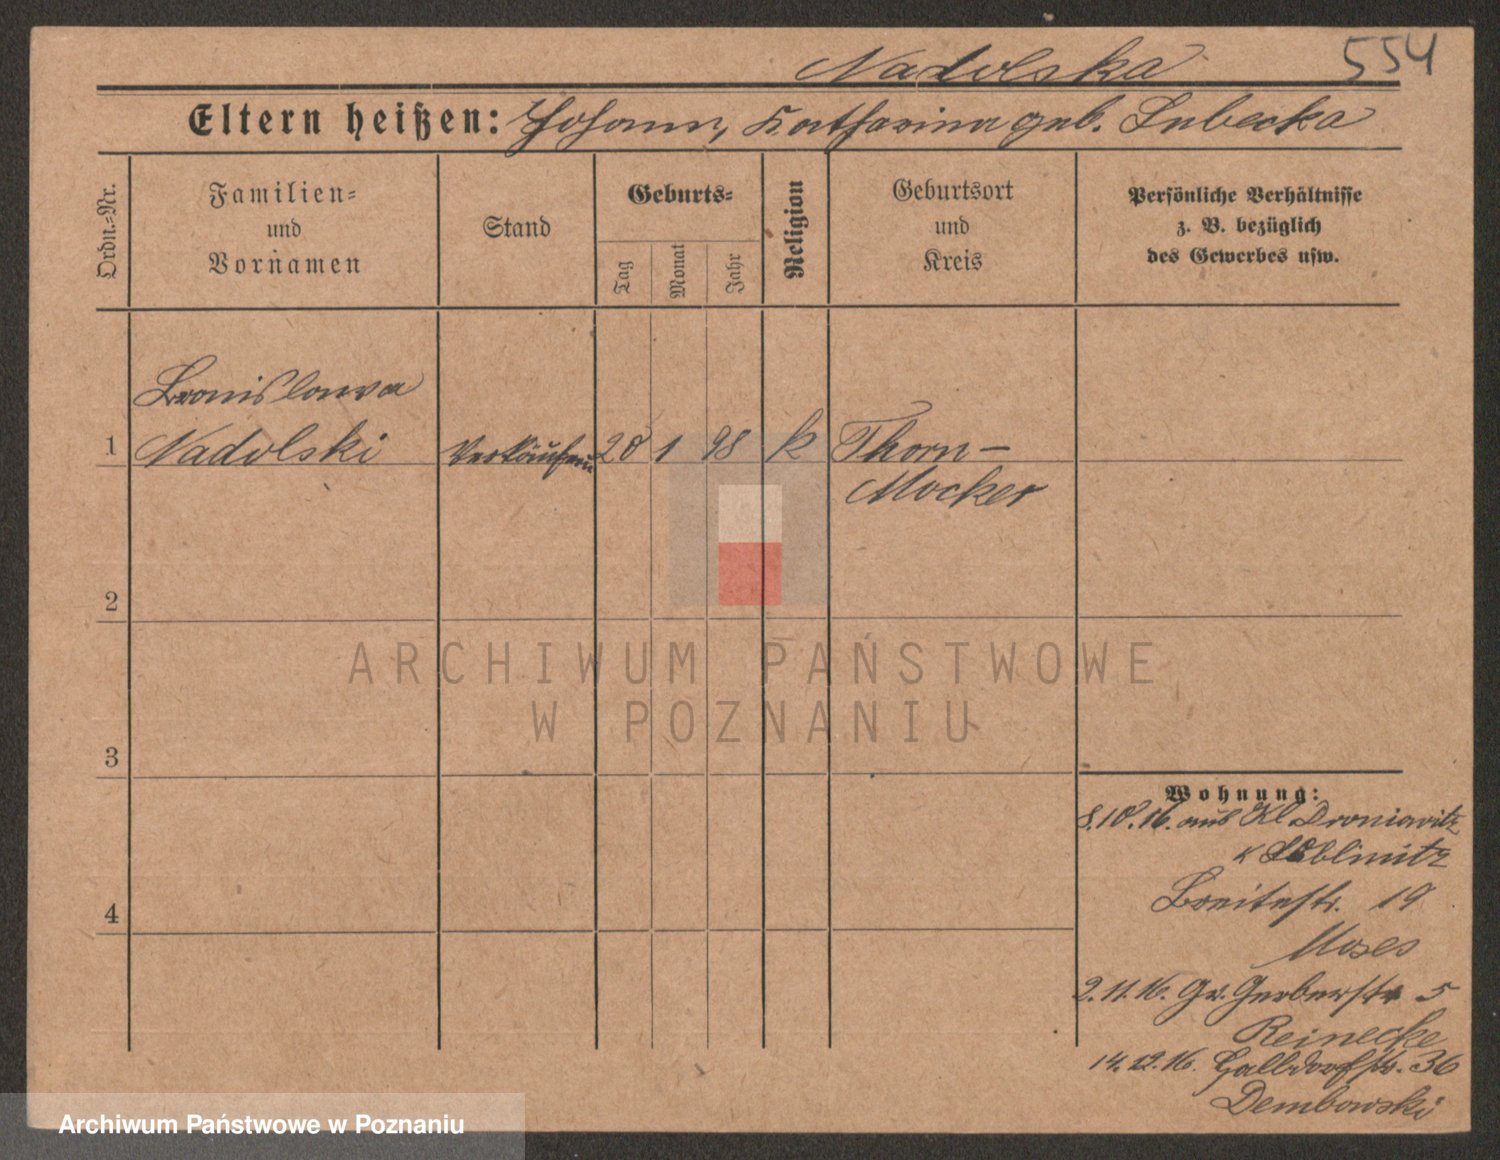 Nadolska 554
Eltern heißen: Johann, Katharina geb. Lubecka
Ordn.=Nr.
Familien=
und
Vornamen
Stand
Geburts=
Tag
Monat
Jahr
Religion
Geburtsort
und
Kreis
Persönliche Verhältnisse
z. B. bezüglich
des Gewerbes usw.
Bronislawa
1 Nadolski Verkäuferin 20 1 98 k Thorn-
Mocker
2
3
4
Wohnung:
8.10.16. aus Kl. Droniowitz
K Lublinitz
Breitestr. 19
Moses
2.11.16. Gr. Gerberstr 5
Reinecke
14.12.16. 36
Dembowski
ARCHIWUM PAŃSTWOWE
W POZNANIU
Archiwum Państwowe w Poznaniu